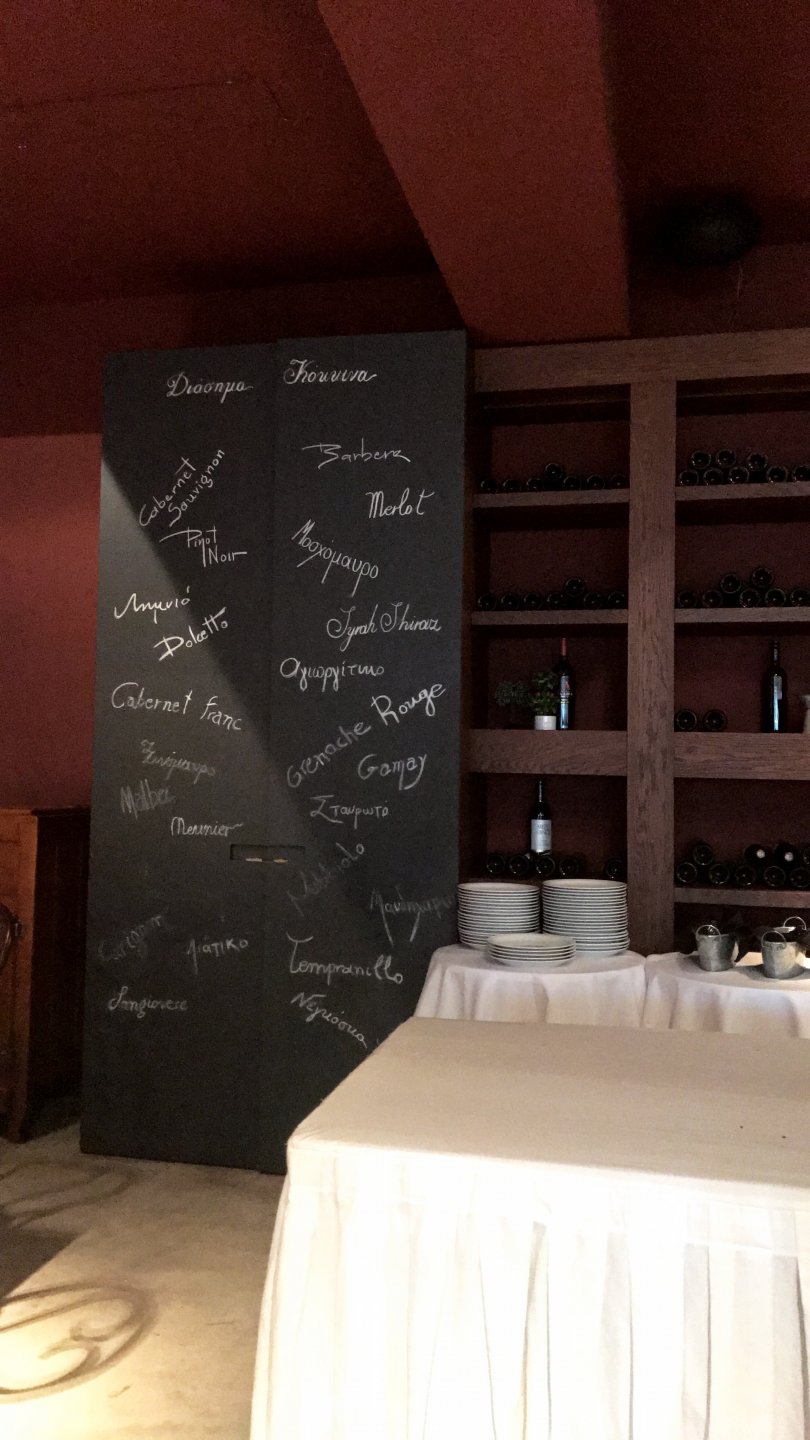 Διάσημα Κόκκινα
Cabernet
Sauvignon
Pinot
Noir
Λημνιό
Dolcetto
Cabernet franc
Ξινόμαυρο
Malbec
Meunier
Carignan
Λιάτικο
Sangiovese
Barbera
Merlot
Μοσχόμαυρο
Syrah Shiraz
Αγιωργίτικο
Grenache Rouge
Gamay
Σταυρωτό
Nebbiolo
Μανδηλαριά
Tempranillo
Νεγκόσκα